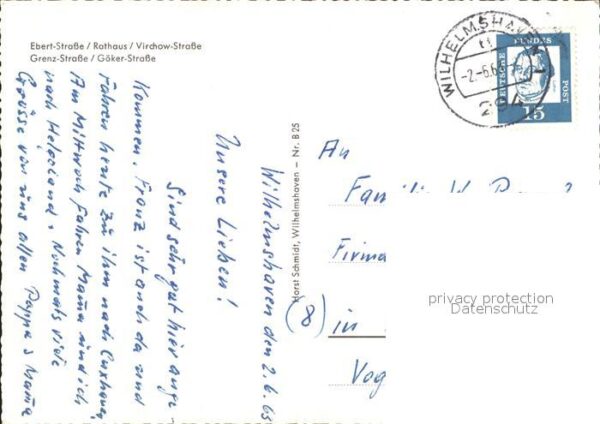 Ebert-Straße / Rathaus / Virchow-Straße
Grenz-Straße / Göker-Straße
Wilhelmshaven den 2.6.65
Unsere Lieben!
Sind sehr gut hier ange-
kommen. Franz ist auch da und
fahren heute zu ihm nach Cuxhaven
Am Mittwoch fahren Mama und ich
nach Helgoland. Nochmals viele
Grüsse von uns allen Pappa & Mama
Horst Schmidt, Wilhelmshaven - Nr. B 25
WILHELMSHAVEN
-2.-6.6
294
DEUTSCHE
BUNDES
POST
15
An
Firma
(8) in
Vog
privacy protection
Datenschutz